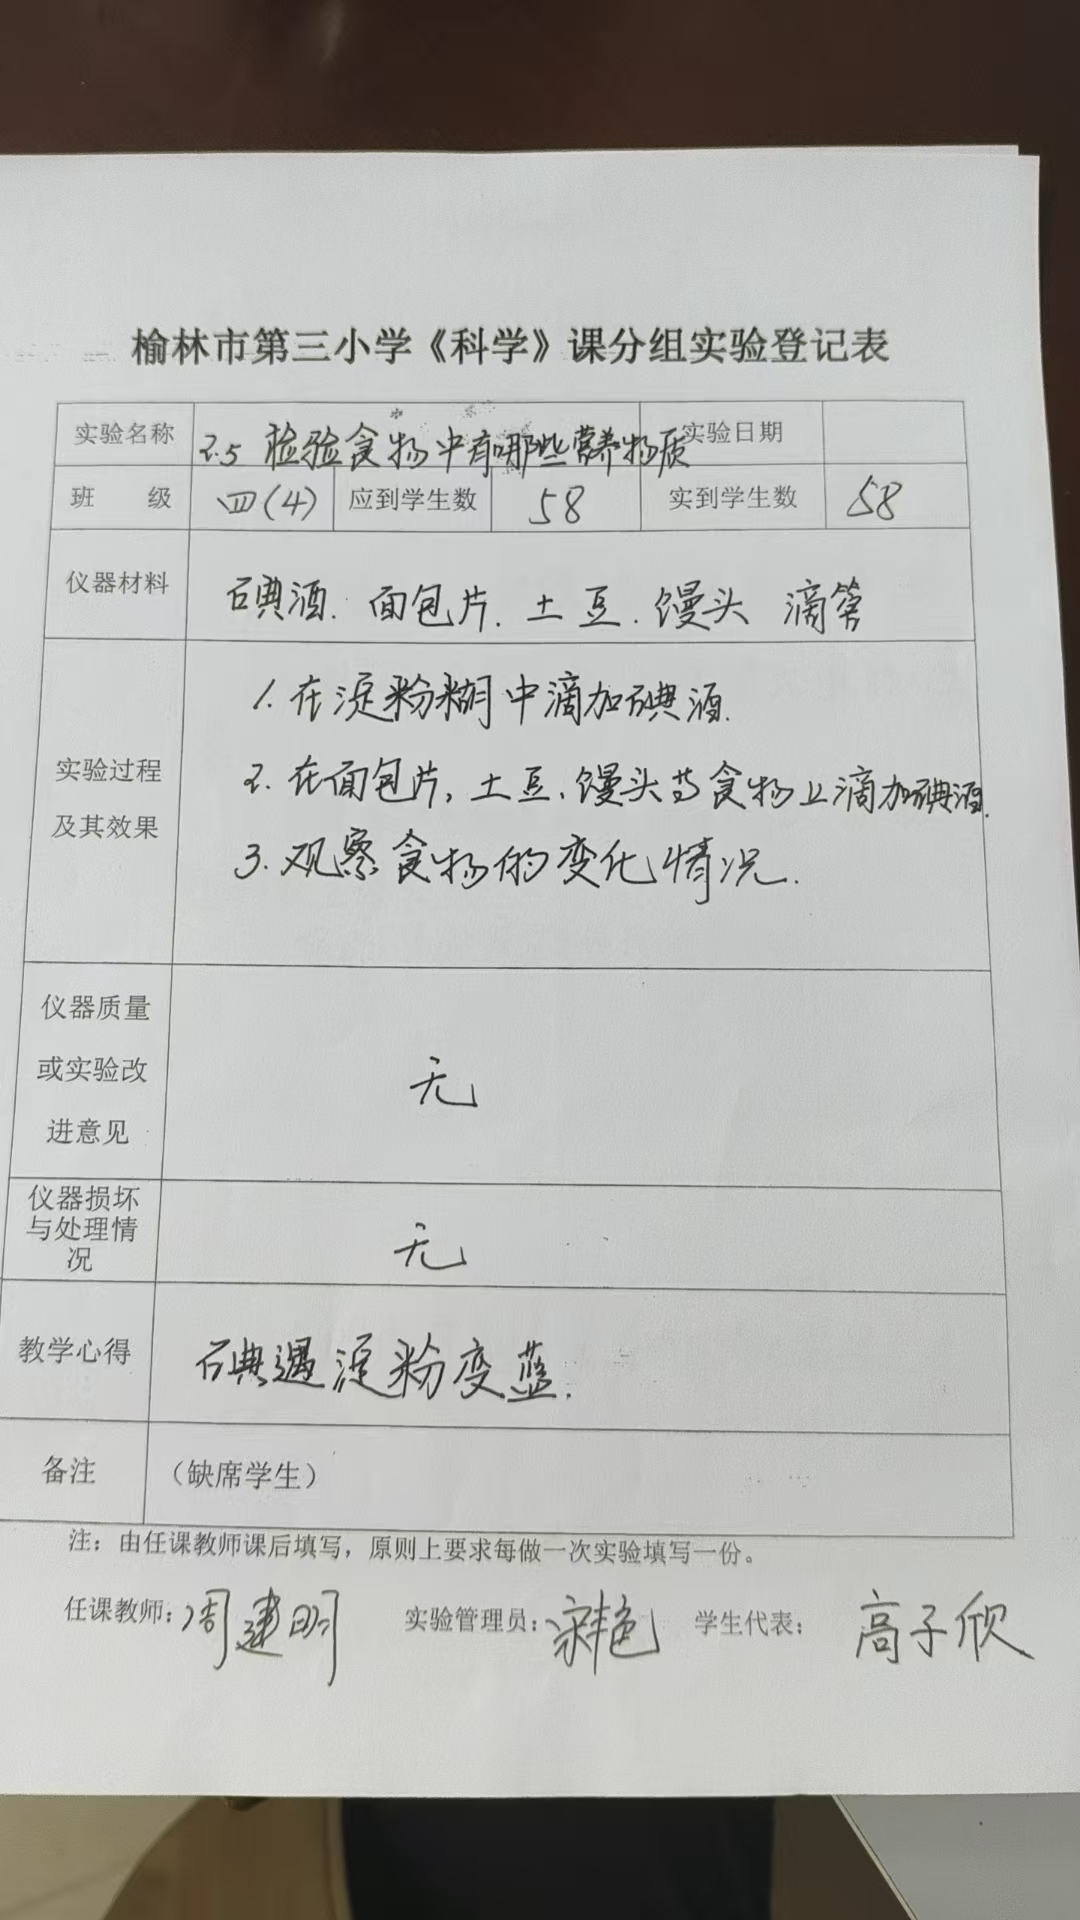 榆林市第三小学《科学》课分组实验登记表
实验名称 2.5 检验食物中有哪些营养物质 实验日期
班 级 四(4) 应到学生数 58 实到学生数 58
仪器材料 碘酒. 面包片. 土豆. 馒头 滴管
实验过程
及其效果
1. 在淀粉糊中滴加碘酒.
2. 在面包片, 土豆, 馒头等食物上滴加碘酒.
3. 观察食物的变化情况.
仪器质量
或实验改
进意见
无
仪器损坏
与处理情
况
无
教学心得 碘遇淀粉变蓝.
备注 （缺席学生）
注：由任课教师课后填写，原则上要求每做一次实验填写一份。
任课教师: 周建明 实验管理员: 学生代表: 高子欣